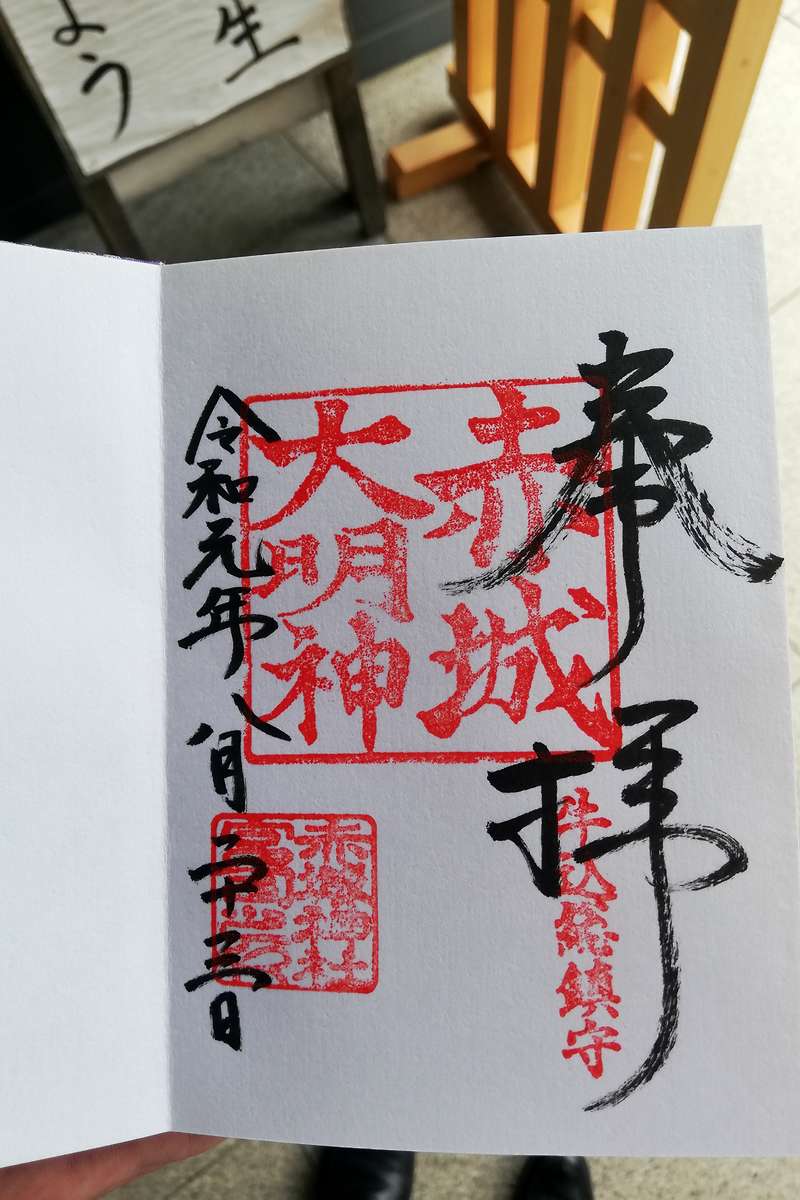 生
よう
奉拝
赤城
大明神
牛込総鎮守
赤城神社
令和元年八月二十三日